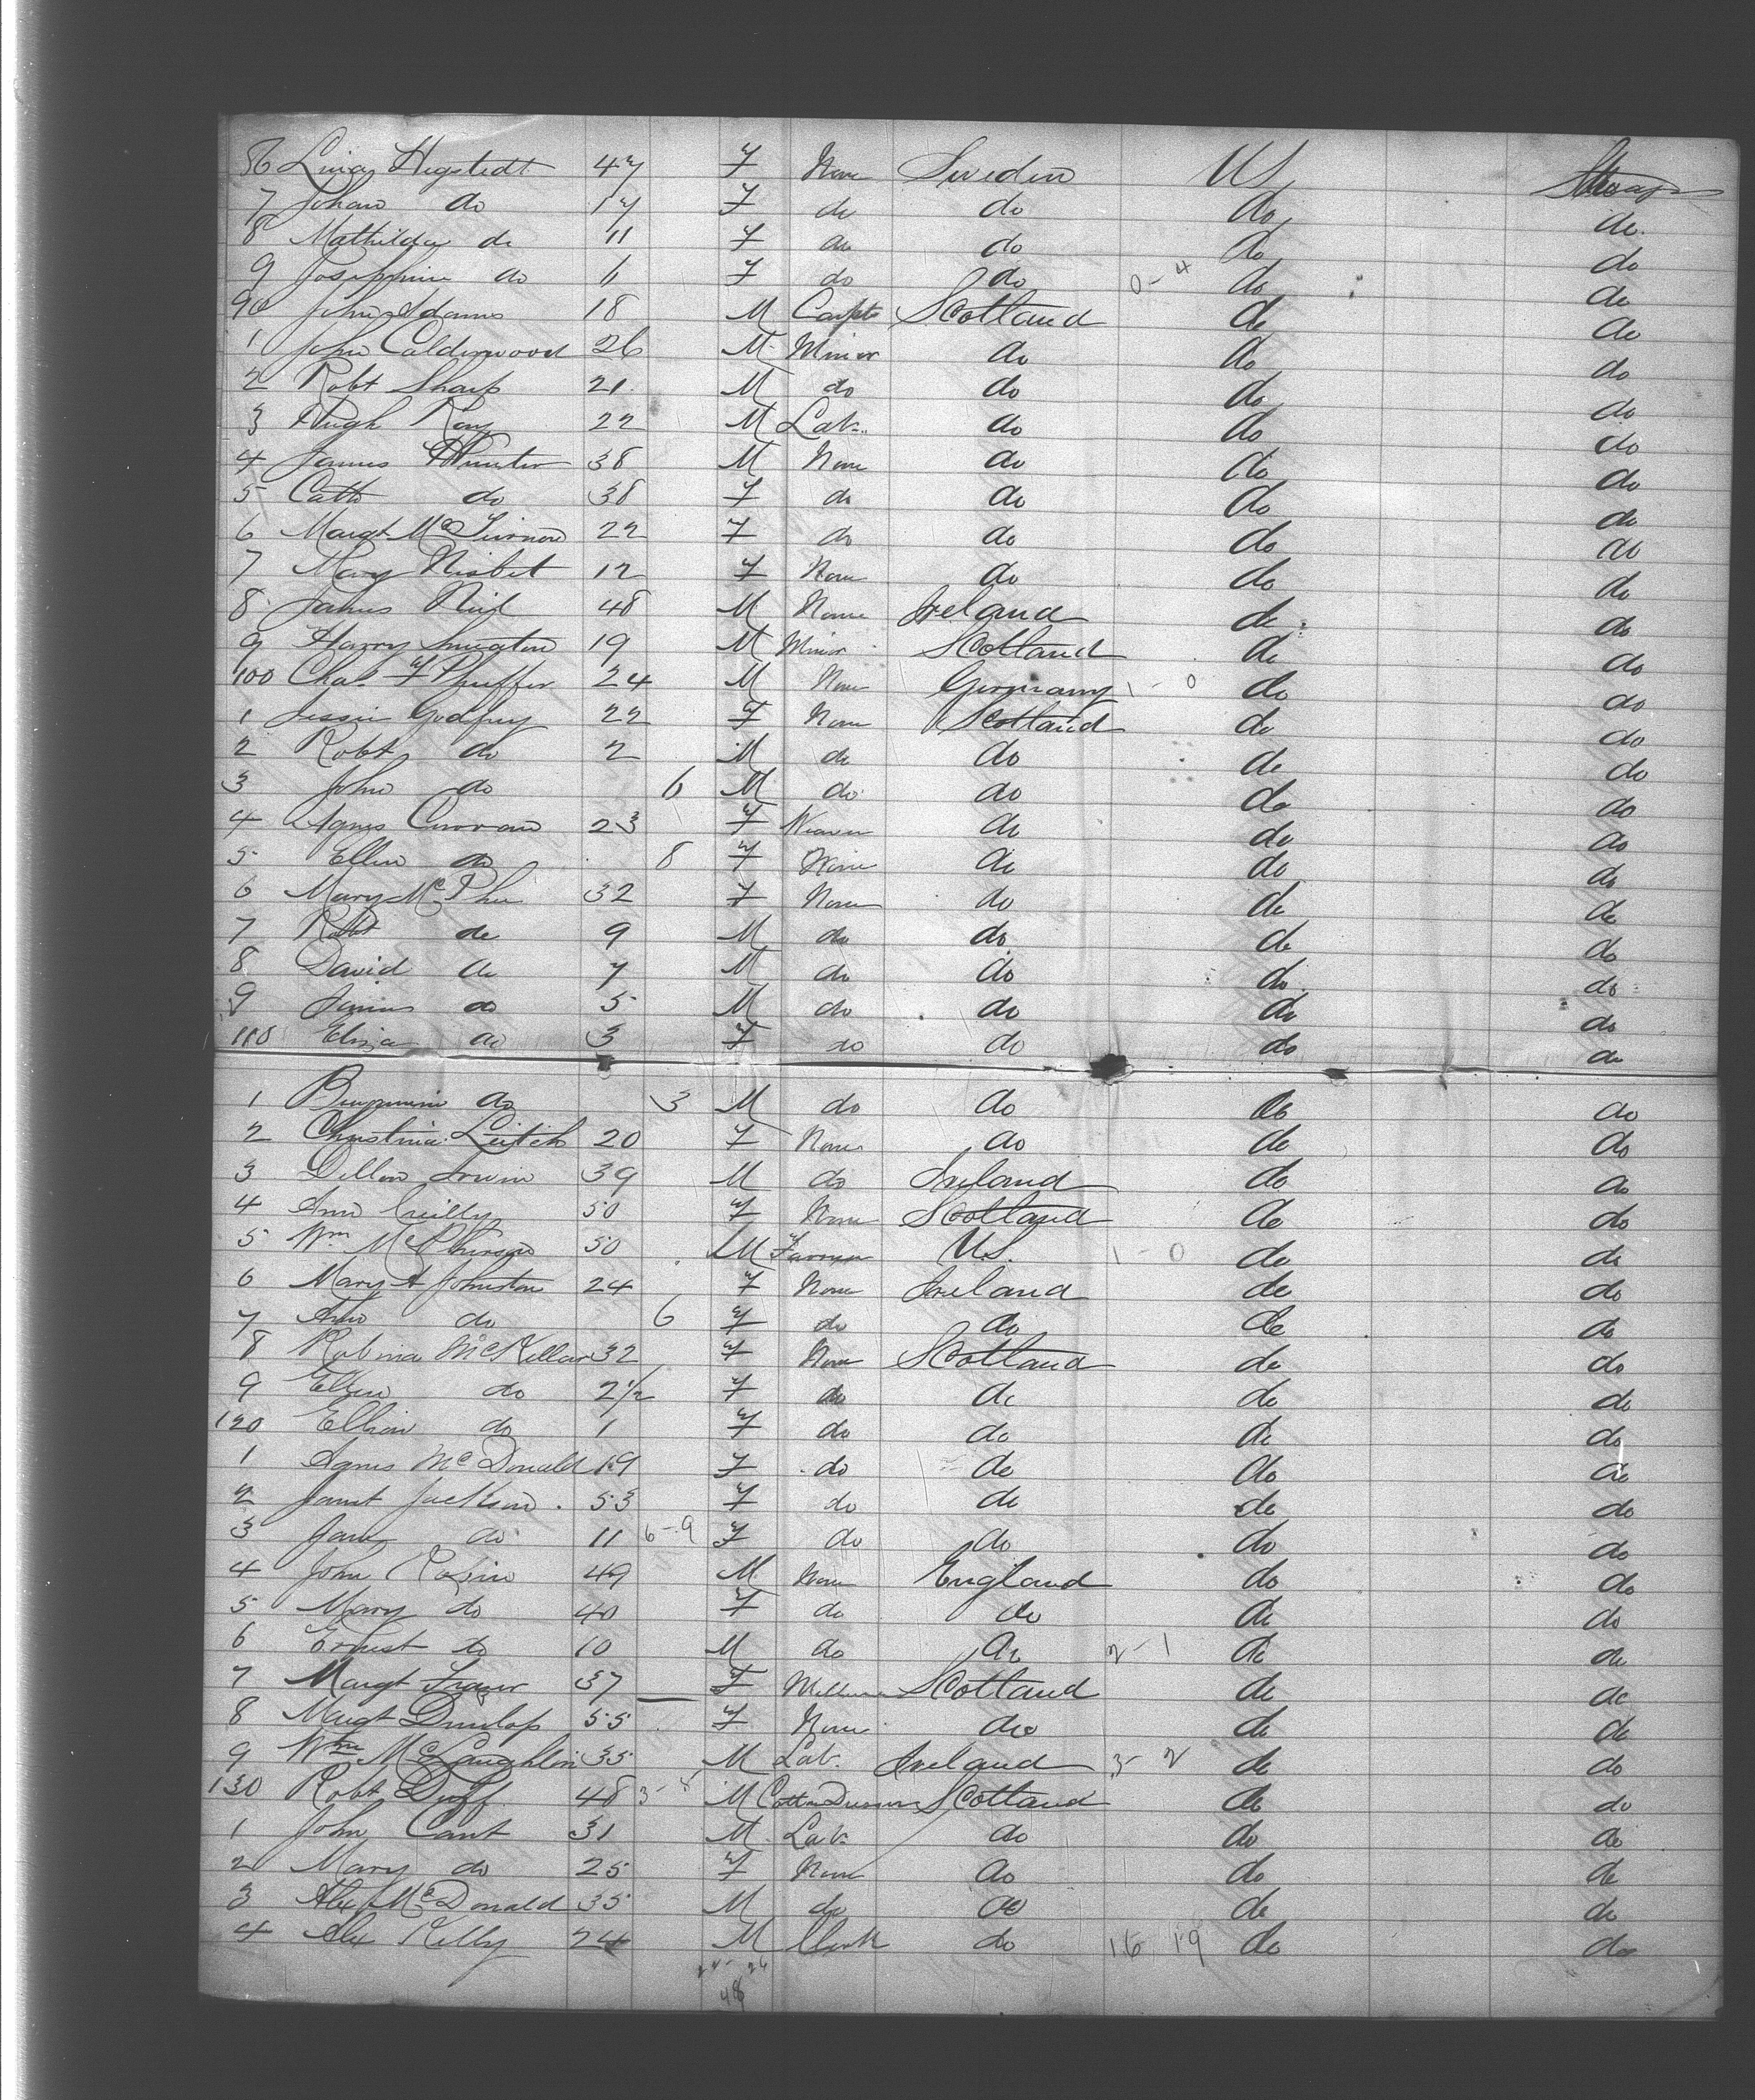 86 Lina Hegstedt 47 F None Sweden US Steerage
7 Johan do 17 F do do do do
8 Mathilda do 11 F do do do do
9 Josephine do 6 F do do 0-4 do do
90 John Adams 18 M Carptr Scotland do do
1 John Calderwood 26 M Miner do do do
2 Robt Sharp 21 M do do do do
3 Hugh Kay 22 M Lab. do do do
4 James Hunter 38 M None do do do
5 Cath do 38 F do do do do
6 Margt 22 F do do do do
7 Mary Nisbet 12 F None do do do
8 James Neil 48 M None Ireland do do
9 Harry 19 M Miner Scotland do do
100 Chas F Pfuffer 24 M None Germany 1-0 do do
1 Jessie Godfrey 22 F None Scotland do do
2 Robt do 2 M do do do do
3 John do 6 M do do do do
4 Agnes Curran 23 F Weaver do do do
5 Ellen do 8 F None do do do
6 Mary McPhee 32 F None do do do
7 Robt do 9 M do do do do
8 David do 7 M do do do do
9 James do 5 M do do do do
110 Eliza do 3 F do do do do
1 Benjamin do 3 M do do do do
2 Christina Leitch 20 F None do do do
3 Dillon Irwin 39 M do Ireland do do
4 Ann Crilly 50 F None Scotland do do
5 Wm McPherson 50 M Farmer U.S. 1-0 do do
6 Mary A Johnston 24 F None Ireland do do
7 Ann do 6 F do do do do
8 Robina McKellar 32 F None Scotland do do
9 Ellen do 2 1/2 F do do do do
120 do 1 F do do do do
1 Agnes McDonald 19 F do do do do
2 Janet Jackson 53 F do do do do
3 Jane do 11 6-9 F do do do do
4 John 49 M None England do do
5 Mary do 40 F do do do do
6 Ernest do 10 M do do 2-1 do do
7 Margt Fraser 37 F Milliner Scotland do do
8 Margt Dunlop 55 F None do do do
9 Wm McLaughlin 35 M Lab. Ireland 3-2 do do
130 Robt Duff 48 M Cotton Dresser Scotland do do
1 John Cant 31 M Lab. do do do
2 Mary do 25 F None do do do
3 Alex McDonald 35 M do do do do
4 Alex Kelly 24 M Clerk do 16 19 do do
48